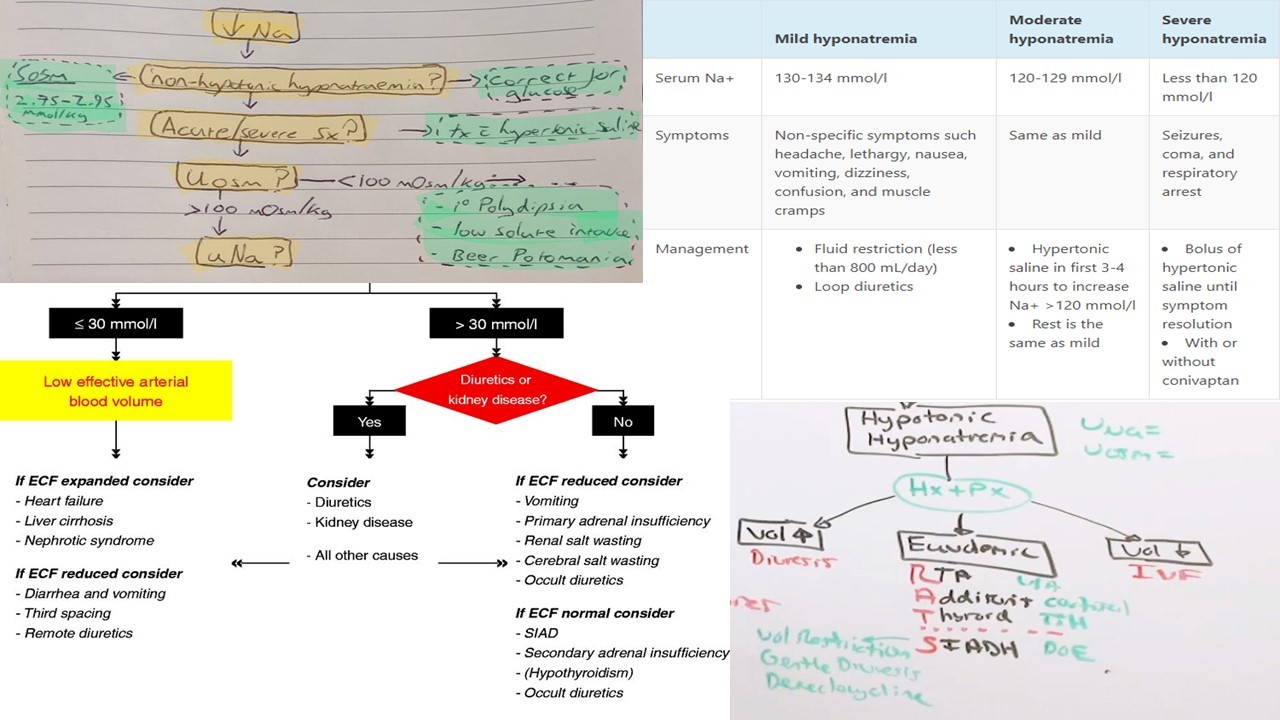 ↓ Na
Sosm
2.75-2.95
mmol/kg
non-hypotonic hyponatraemia?
correct for
glucose
Acute/severe Sx?
hypertonic saline
Uosm?
<100 mOsm/kg
>100 mOsm/kg
- 1° Polydipsia
- low solute intake
- Beer Potomania
uNa?
Mild hyponatremia
Moderate
hyponatremia
Severe
hyponatremia
Serum Na+
130-134 mmol/l
120-129 mmol/l
Less than 120
mmol/l
Symptoms
Non-specific symptoms such
headache, lethargy, nausea,
vomiting, dizziness,
confusion, and muscle
cramps
Same as mild
Seizures,
coma, and
respiratory
arrest
Management
• Fluid restriction (less
than 800 mL/day)
• Loop diuretics
• Hypertonic
saline in first 3-4
hours to increase
Na+ >120 mmol/l
• Rest is the
same as mild
• Bolus of
hypertonic
saline until
symptom
resolution
• With or
without
conivaptan
≤ 30 mmol/l
> 30 mmol/l
Low effective arterial
blood volume
Diuretics or
kidney disease?
Yes
No
If ECF expanded consider
- Heart failure
- Liver cirrhosis
- Nephrotic syndrome
If ECF reduced consider
- Diarrhea and vomiting
- Third spacing
- Remote diuretics
Consider
- Diuretics
- Kidney disease
- All other causes
If ECF reduced consider
- Vomiting
- Primary adrenal insufficiency
- Renal salt wasting
- Cerebral salt wasting
- Occult diuretics
If ECF normal consider
- SIAD
- Secondary adrenal insufficiency
- (Hypothyroidism)
- Occult diuretics
Hypotonic
Hyponatremia
UNa=
UOSM=
Hx+Px
Vol ↑
Diuresis
Euvolemic
Vol ↓
IVF
RTA U/A
Addison's cortisol
Thyroid TSH
SIADH DOE
Vol Restriction
Gentle Diuresis
Demeclocycline